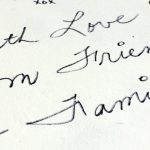 xox
th Love
om Frien
Fami